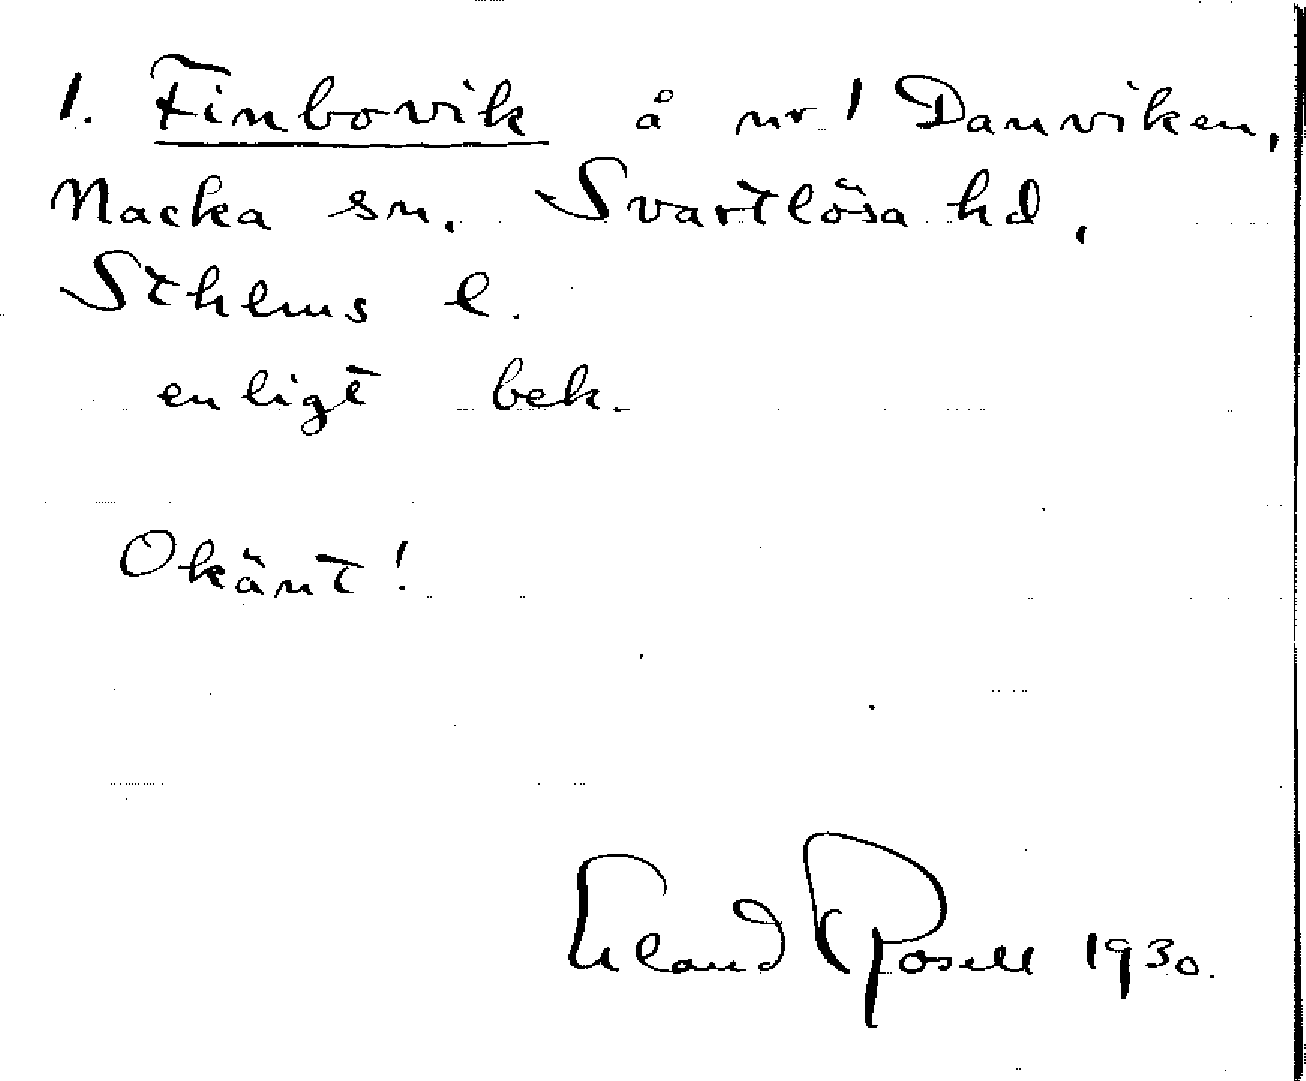 1. Finbovik å nr 1 Danviken,
Nacka sn. Svartlösa hd,
Sthlms l.
enligt bek.
Okänt!
Erland Rosell 1930.